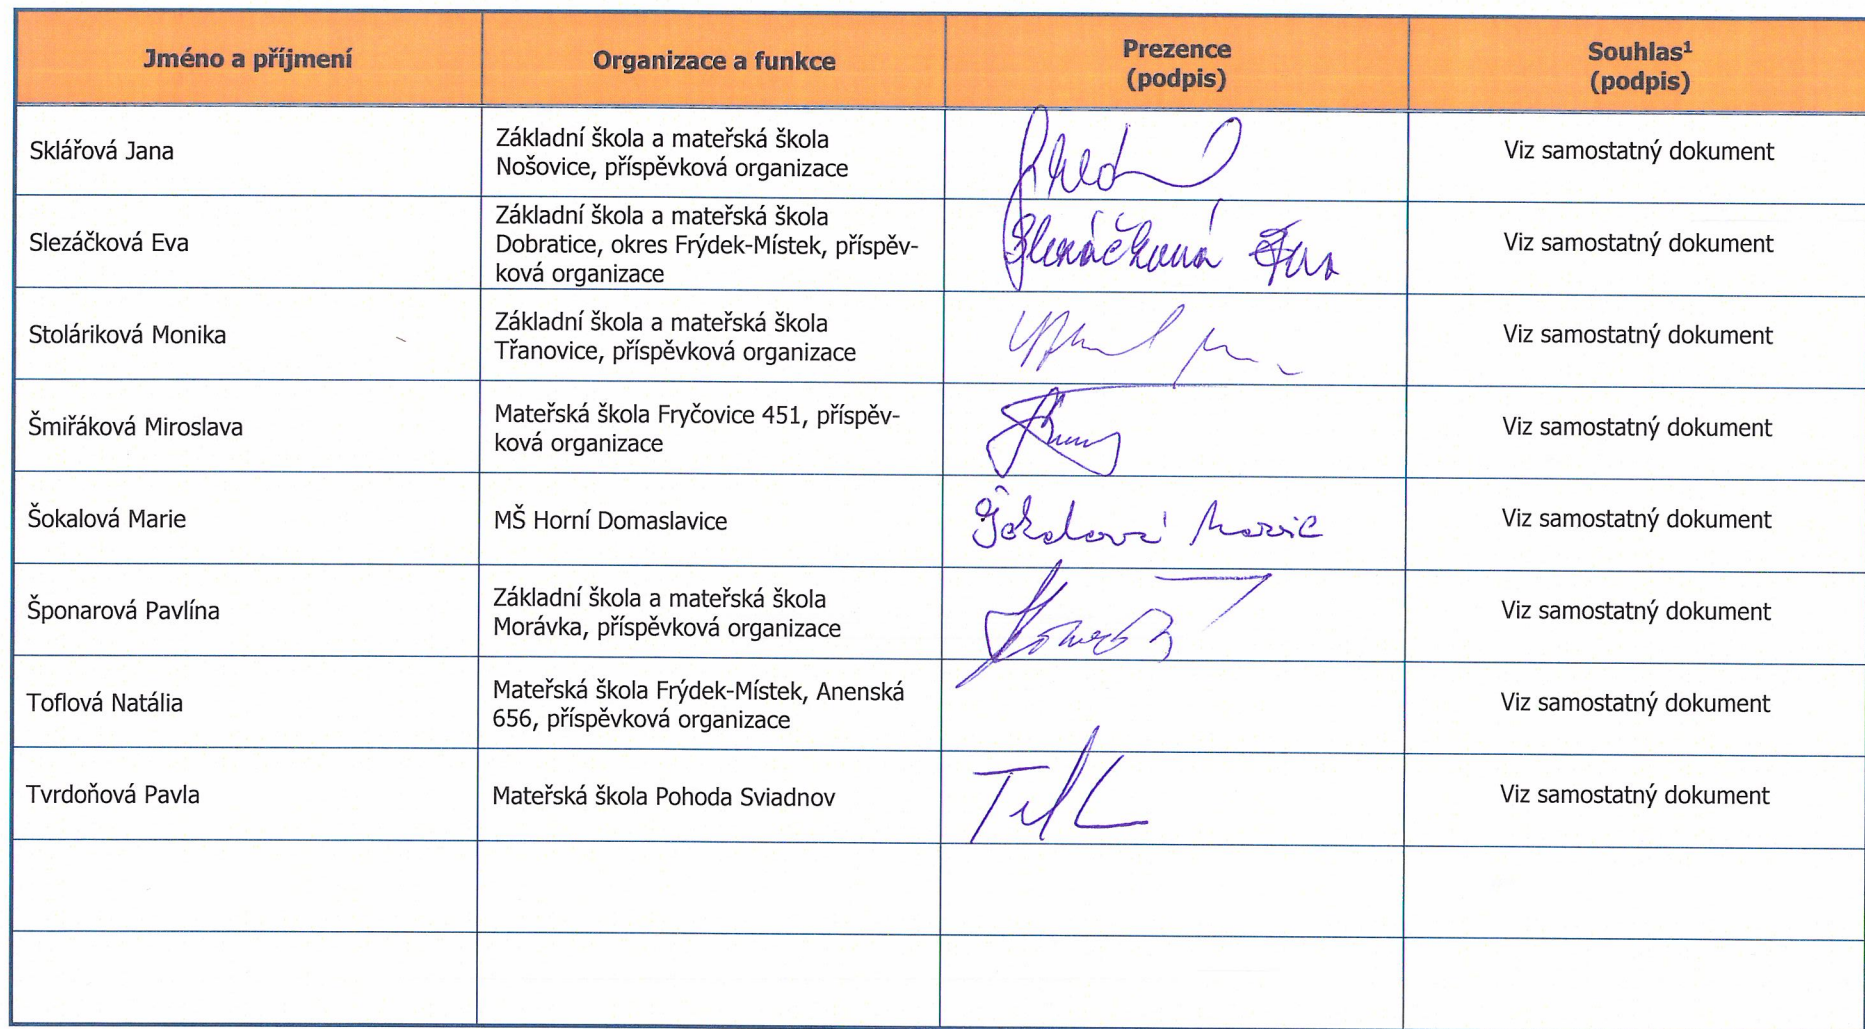 Jméno a příjmení
Organizace a funkce
Prezence
(podpis)
Souhlas¹
(podpis)
Sklářová Jana
Základní škola a mateřská škola
Nošovice, příspěvková organizace
Viz samostatný dokument
Slezáčková Eva
Základní škola a mateřská škola
Dobratice, okres Frýdek-Místek, příspěv-
ková organizace
Slezáčková Eva
Viz samostatný dokument
Stoláriková Monika
Základní škola a mateřská škola
Třanovice, příspěvková organizace
Viz samostatný dokument
Šmiřáková Miroslava
Mateřská škola Fryčovice 451, příspěv-
ková organizace
Viz samostatný dokument
Šokalová Marie
MŠ Horní Domaslavice
Šokalová Marie
Viz samostatný dokument
Šponarová Pavlína
Základní škola a mateřská škola
Morávka, příspěvková organizace
Viz samostatný dokument
Toflová Natália
Mateřská škola Frýdek-Místek, Anenská
656, příspěvková organizace
Viz samostatný dokument
Tvrdoňová Pavla
Mateřská škola Pohoda Sviadnov
Viz samostatný dokument